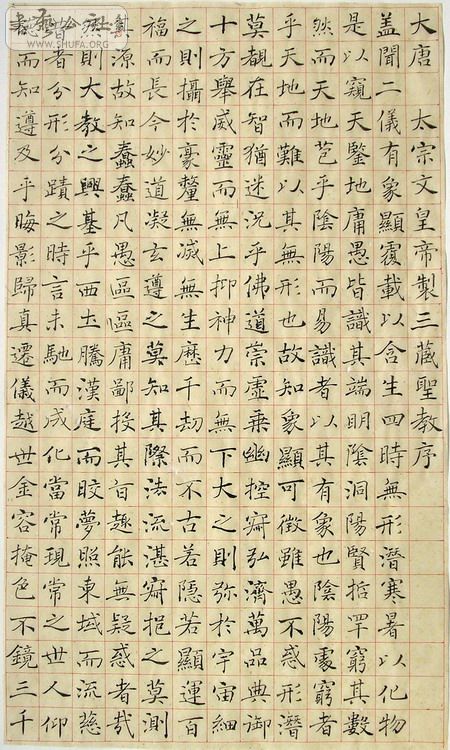 WWW.SHUFA.ORG
大唐 太宗文皇帝製三藏聖教序
蓋聞二儀有象顯覆載以含生四時無形潛寒暑以化物
是以窺天鑒地庸愚皆識其端明陰洞陽賢哲罕窮其數
然而天地苞乎陰陽而易識者以其有象也陰陽處窮者
乎天地而難以其無形也故知象顯可徵雖愚不惑形潛
莫覩在智猶迷況乎佛道崇虛乘幽控寂弘濟萬品典御
十方舉威靈而無上抑神力而無下大之則彌於宇宙細
之則攝於豪釐無滅無生歷千劫而不古若隱若顯運百
福而長今妙道凝玄遵之莫知其際法流湛寂挹之莫測
其源故知蠢蠢凡愚區區庸鄙投其旨趣能無疑惑者哉
則大教之興基乎西土騰漢庭而皎夢照東域而流慈
者分形分蹟之時言未馳而成化當常現常之世人仰
德而知遵及乎晦影歸真遷儀越世金容掩色不鏡三千